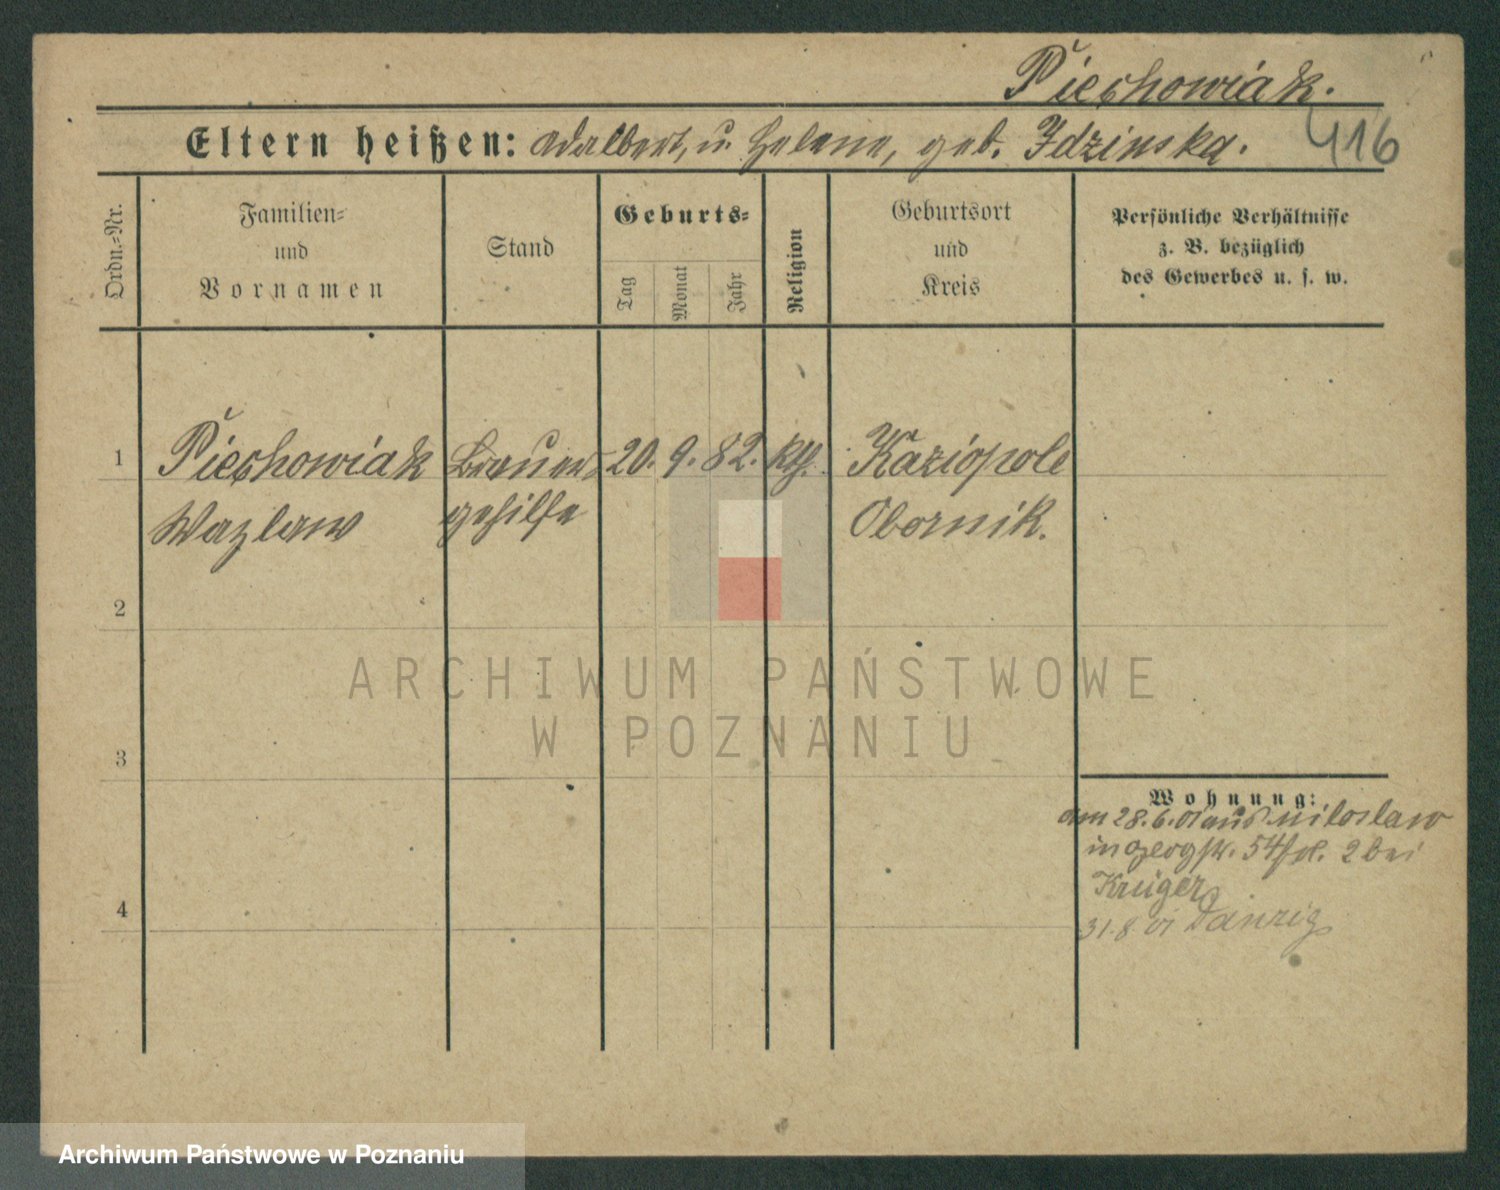 Piechowiak.
Eltern heißen: Adalbert, u. Helene, geb. Idzinska.
416
Ordn.-Nr.
Familien-
und
Vornamen
Stand
Geburts-
Tag
Monat
Jahr
Religion
Geburtsort
und
Kreis
Persönliche Verhältnisse
z. B. bezüglich
des Gewerbes u. s. w.
1 Piechowiak Brauer- 20. 9. 82. kth. Kaziopole
Wazlaw gehilfe Obornik.
2
3
4
Wohnung:
am 28.6.01 aus Miloslaw
in 54 2 bei
Krüger
31.8 01 Danzig
ARCHIWUM PAŃSTWOWE
W POZNANIU
Archiwum Państwowe w Poznaniu